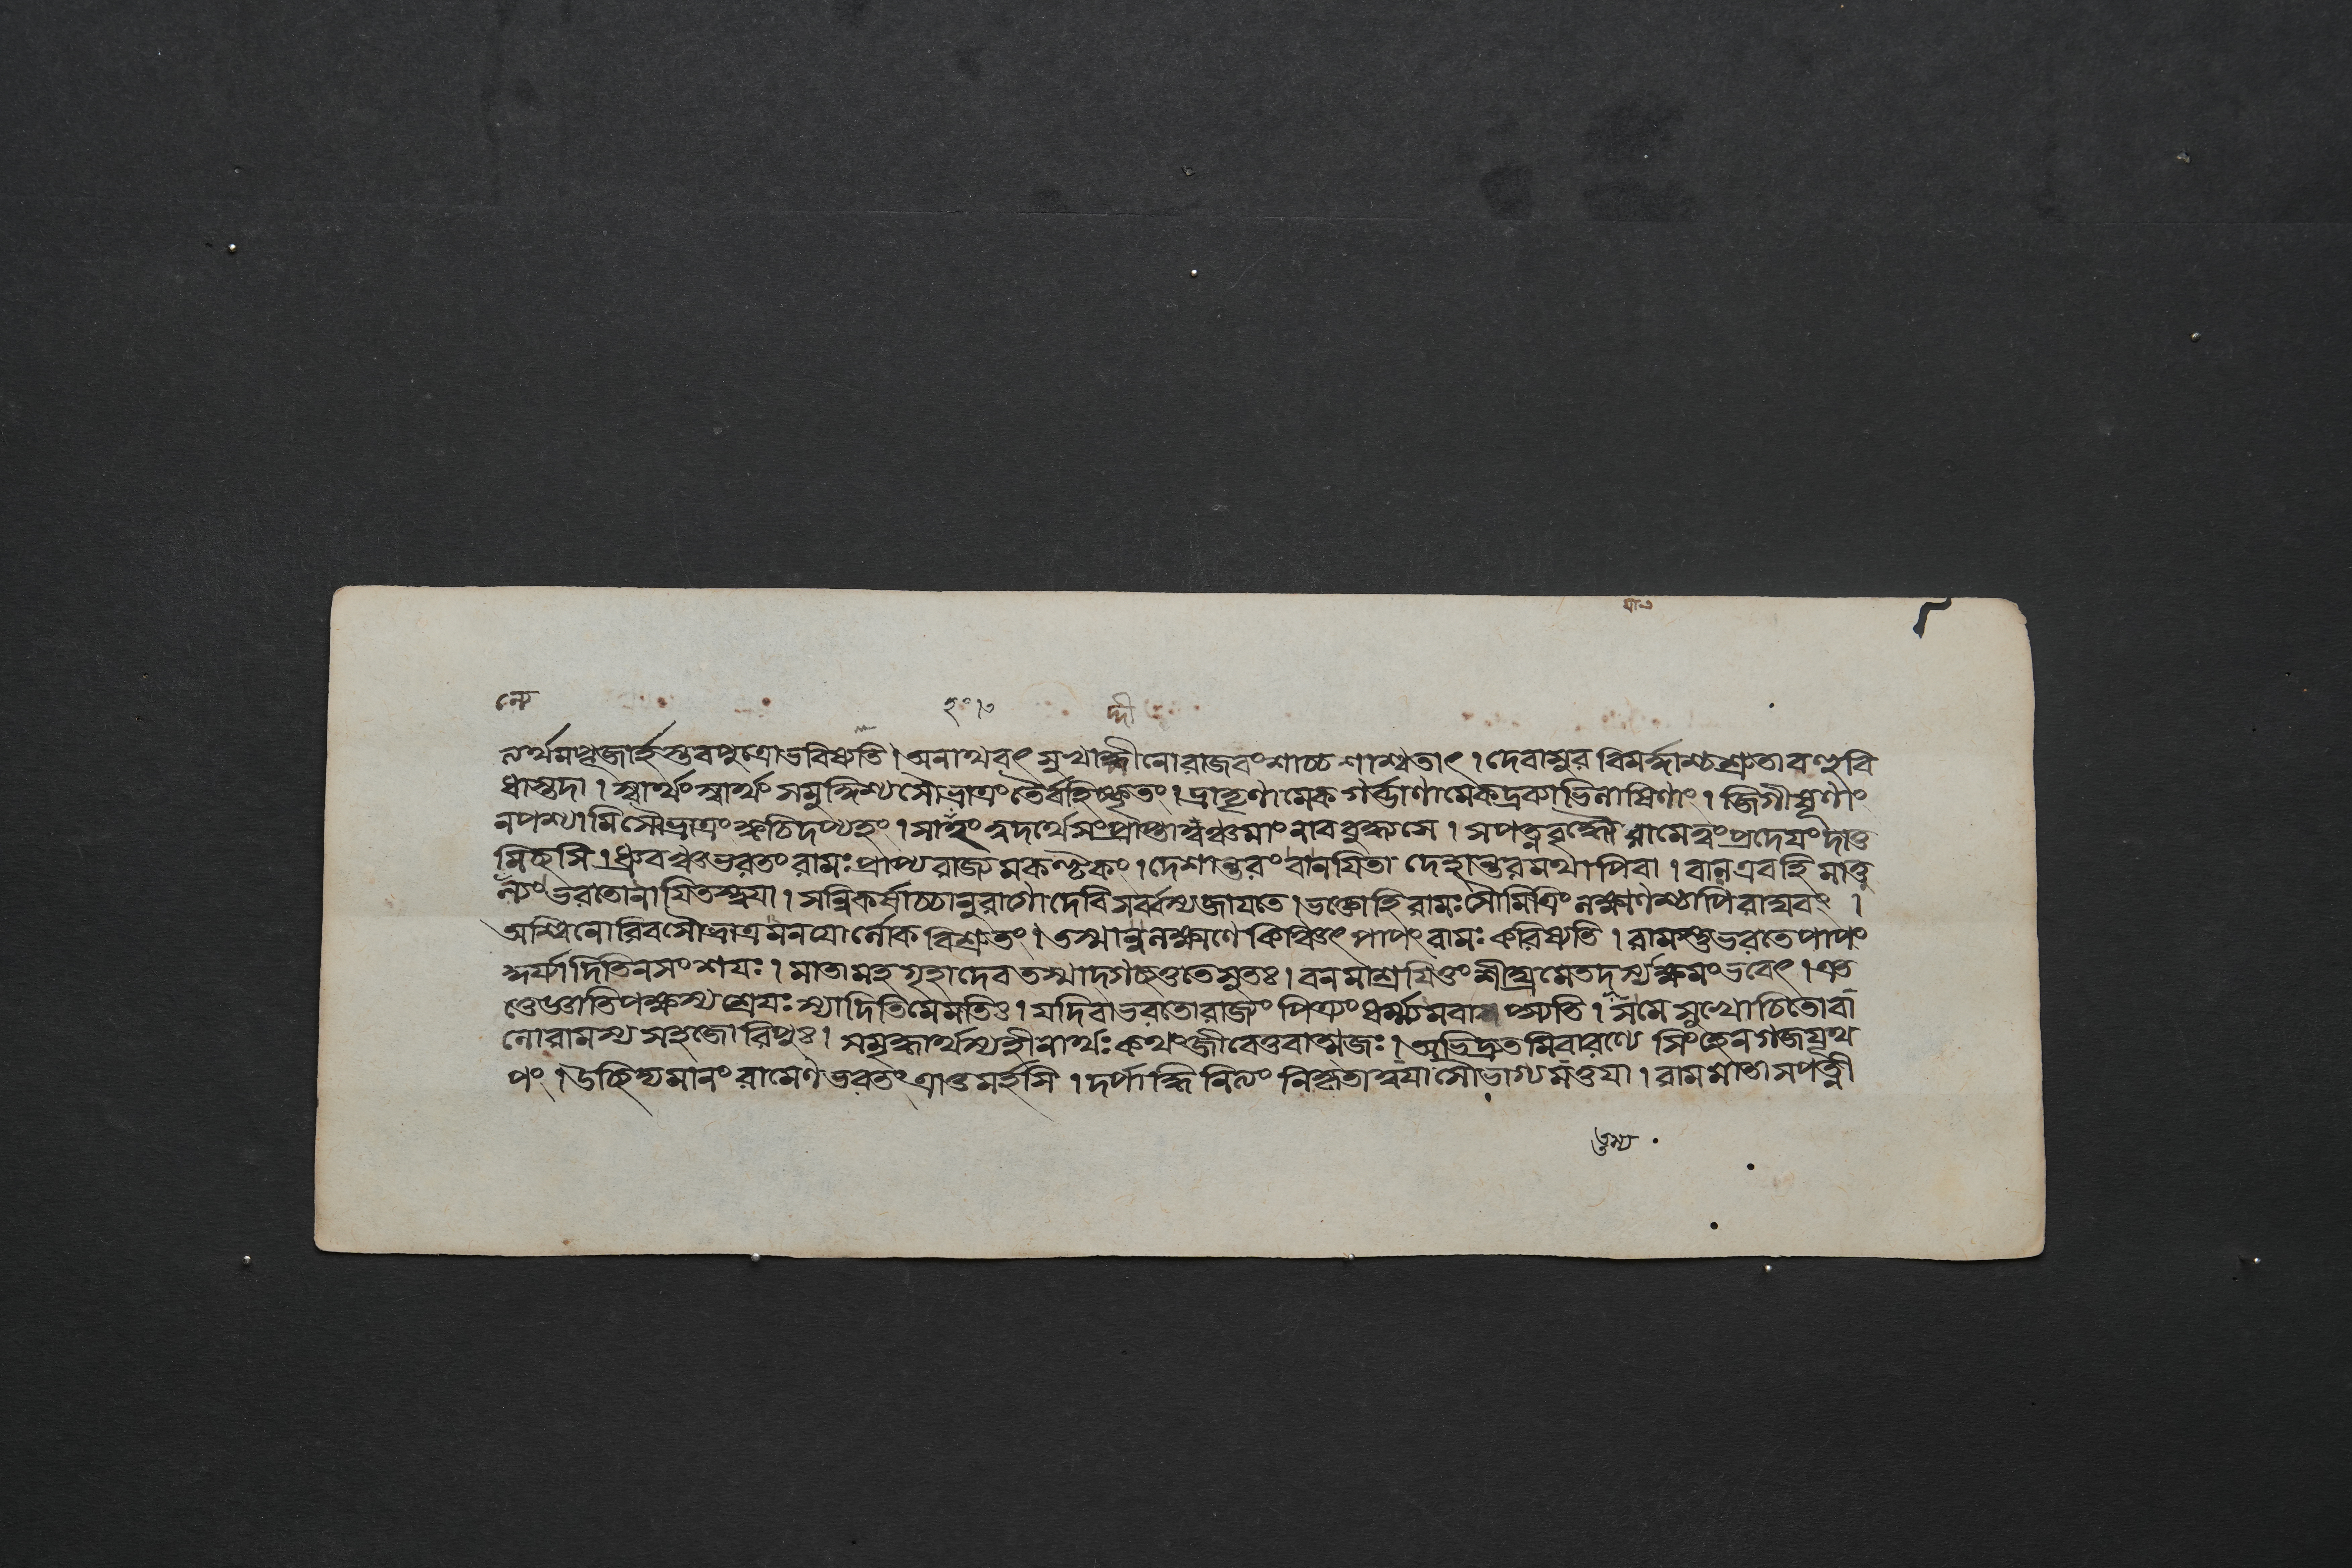 নর্থমপ্রজার্হস্তবপুত্রোভবিষ্যতি। অনাথবৎ সুখাদ্ধীনোরাজবংশাচ্চ শাশ্বতাৎ। দেবাসুর বিমর্দ্দাশ্চশ্রুতাবণুবি
ধাস্তদা। স্বার্থং স্বার্থং সমুদ্দিশ্যসৌভ্রাত্রং তৈর্বহিষ্কৃতং। ভ্রাতৃণামেক গর্ব্ভাণামেকদ্রব্যাভিলাষিণাং। জিগীষূণাং
নপশ্যামিসৌভ্রাত্রং ক্বচিদপ্যহং। সাহং ত্বদর্থেসংপ্রাপ্তাত্বঞ্চমাংনাববুধ্যসে। সপত্নবৃদ্ধৌ যামেত্বং প্রদেয়ং দাতু
মিচ্ছসি। ধ্রুবঞ্চভরতং রামঃ প্রাপ্যরাজ্যমকণ্টকং। দেশান্তরং বানয়িতা দেহান্তরমথাপিবা। বালএবহি মাতু
ল্যং ভরতোনায়িতস্ত্বয়া। সন্নিকর্ষাচ্চানুরাগোদেবি সর্ব্বস্যজায়তে। ভক্তোহি রামঃ সৌমিত্রিং লক্ষ্মণশ্চাপি রাঘবং।
অশ্বিনোরিবসৌভ্রাত্রমনয়োর্লোক বিশ্রুতং। তস্মান্নলক্ষ্মণে কিঞ্চিৎ পাপং রামঃ করিষ্যতি। রামস্তুভরতেপাপং
কুর্য্যাদিতিনসংশয়ঃ। মাতামহ গৃহাদেব তস্মাদ্গচ্ছতুতেসুতঃ। বনমাশ্রয়িতুং শীঘ্রমেতদস্যক্ষমং ভবেৎ। এত
তেজ্ঞাতিপক্ষস্য শ্রেয়ঃ স্যাদিতিমেমতিঃ। যদিবাভরতোরাজ্যং পিত্র্যং ধর্ম্মমবাপ্স্যতি। সমে সুখোচিতোবা
লোরামস্য সহজোরিপুঃ। সমৃদ্ধার্থস্যহীনার্থঃ কথং জীবেত্তবাত্মজঃ। অভিদ্রুতমিবারণ্যে সিংহেনগজযূথ
পং। প্রচ্ছিদ্যমানং রামেণ ভরতং ত্রাতুমর্হসি। দর্পাদ্ধি নিত্যং নিকৃতাত্বয়াসৌভাগ্যমত্তয়া। রামমাতা সপত্নী